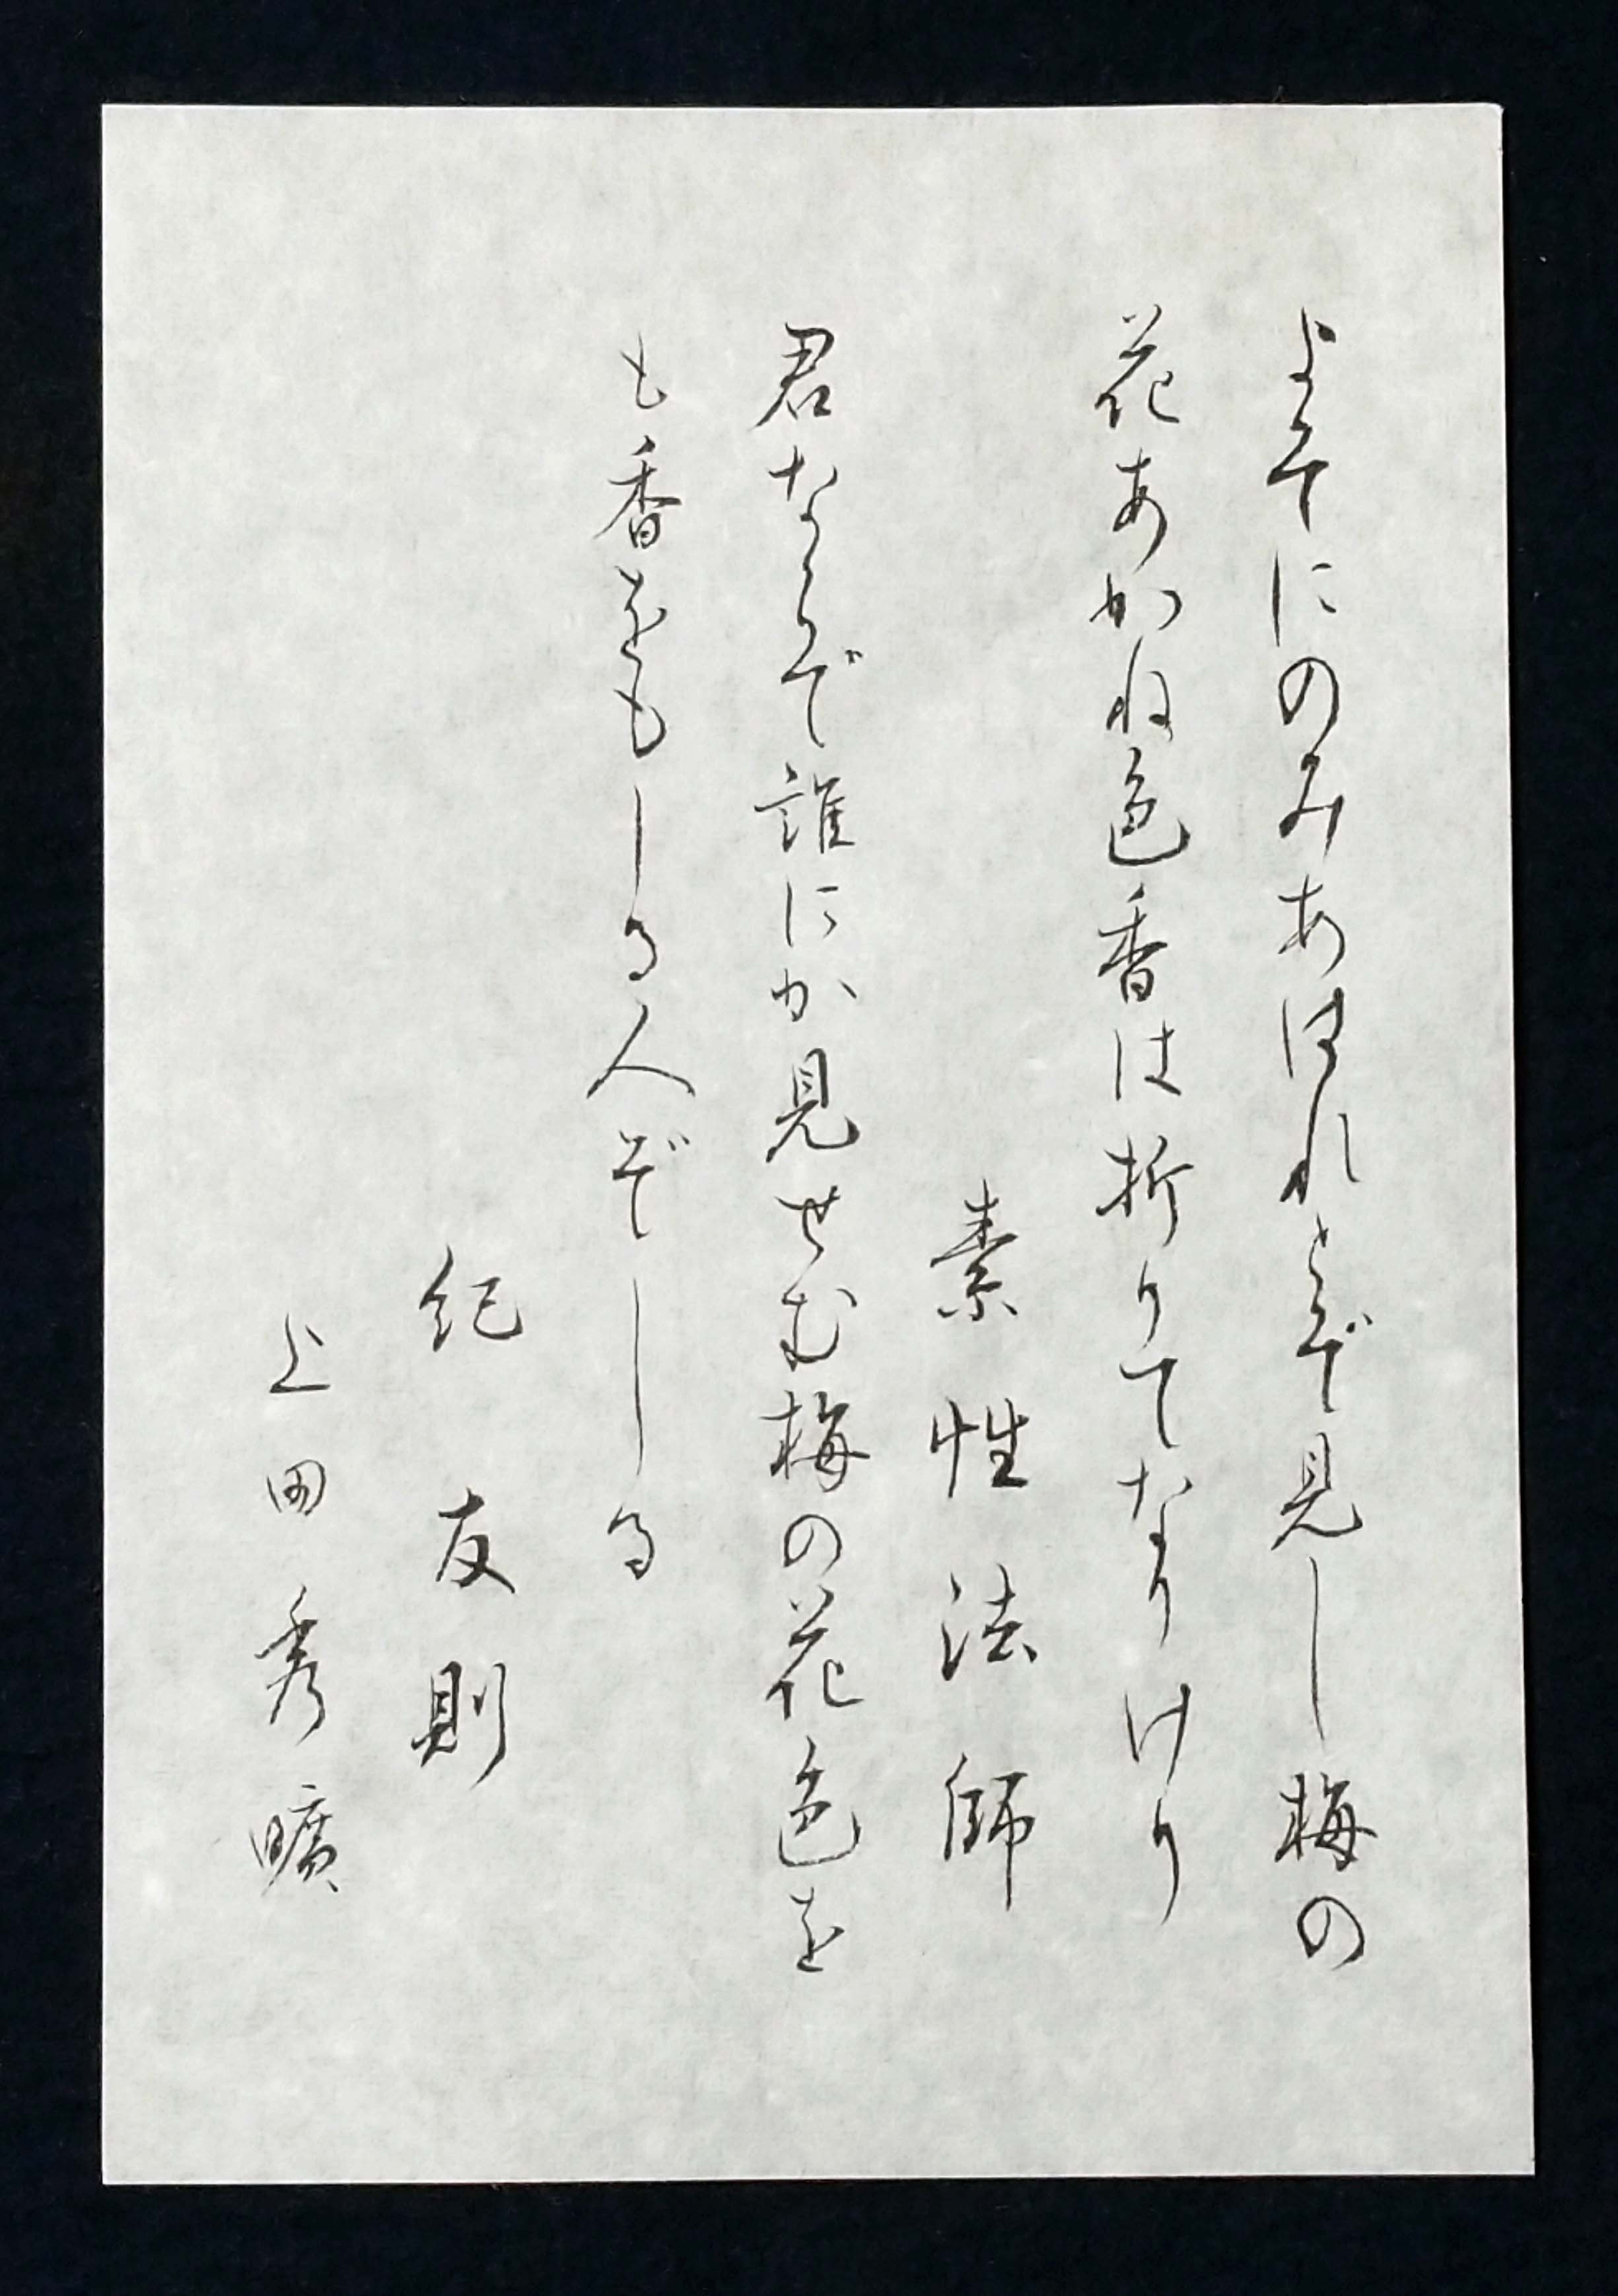 よそにのみあはれとぞ見し梅の
花あかね色香は折りてなりけり
素性法師
君ならで誰にか見せむ梅の花色を
も香をもしる人ぞしる
紀友則
上田秀曠